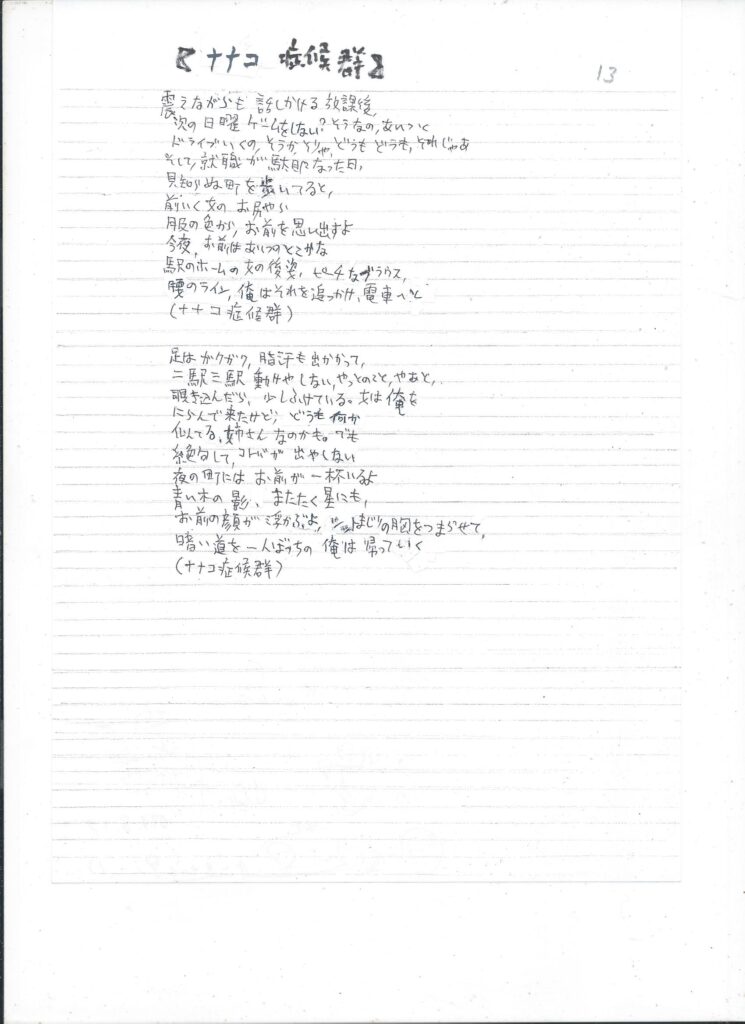 【ナナコ 症候群】
13
震えながらも 話しかける 放課後、
次の日曜 ゲームをしない?そうなの,あいつと
ドライブいくの,そうか,そりゃ,どうも どうも,それじゃあ
そして,就職が駄目になった日,
見知らぬ町を歩いてると,
前いく女の お尻やら
服の色から,お前を思い出すよ
今夜,お前はあいつのとこかな
駅のホームの女の後姿、ピーチなブラウス,
腰のライン,俺はそれを追っかけ、電車へと
(ナナコ症候群)
足は ガクガク,脂汗も出かかって,
二駅三駅 動けやしない,やっとのこと,やあと,
覗き込んだら,少しふけている。女は俺を
にらんで来たけど,どうも何か
似てる,姉さんなのかも。でも
絶句して,コトバが出やしない
夜の町には お前が一杯いるよ
青い木の影、またたく星にも,
お前の顔が浮かぶよ,まじりの胸をつまらせて,
暗い道を一人ぼっちの俺は帰っていく
(ナナコ症候群)